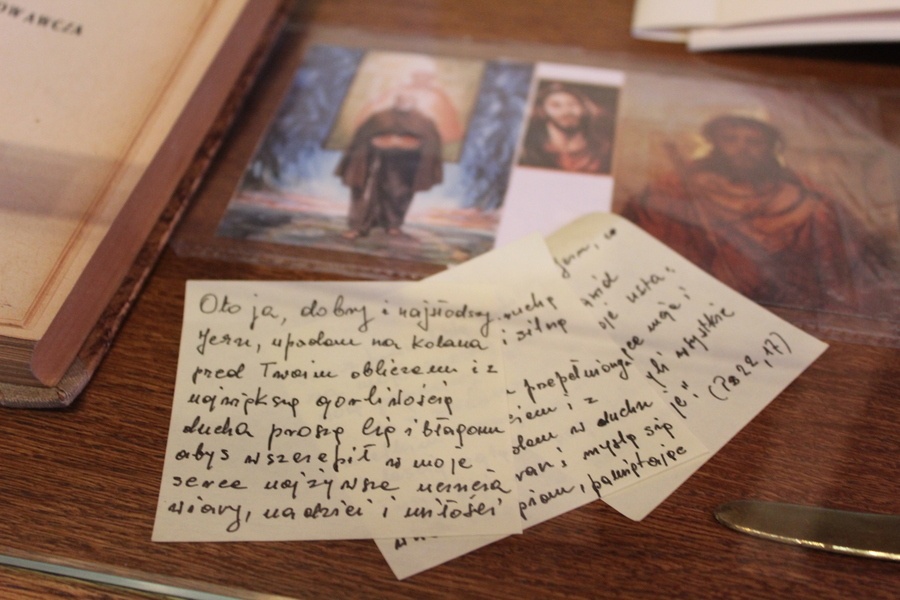 OWAWCZA
Oto ja, dobry i najsłodszy
Jezu, upadam na kolana
przed Twoim obliczem i z
największą gorliwością
ducha proszę Cię i błagam
abyś wszczepił w moje
serce najżywsze uczucia
wiary, nadziei i miłości
skuchę
i silną
przepełniony
i z
w duchu
ran; myślę się
piam, pamiętając
Jezu, co
oje usta:
ce moje i
wszystkie
je." (Ps 22,17)